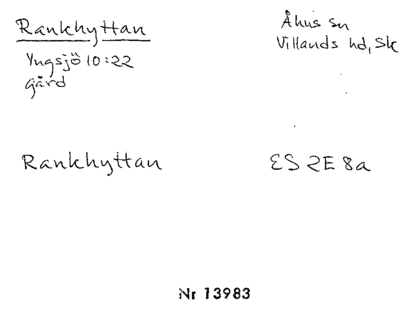 Rankhyttan
Yngsjö 10:22
gård
Åhus sn
Villands hd, Sk
Rankhyttan
ES 2E 8a
Nr 13983